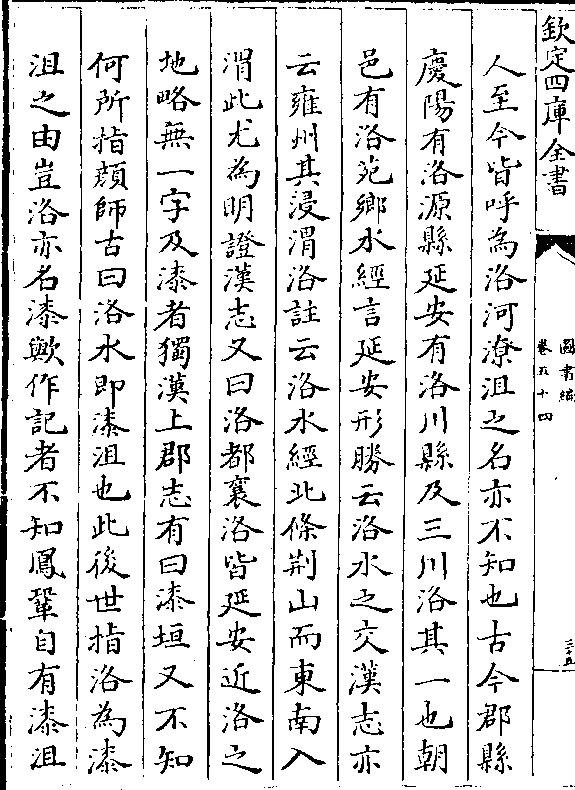 欽定四庫全書
圖書編
卷五十四
三十五
人至今皆呼為洛河潦沮之名亦不知也古今郡縣
慶陽有洛源縣延安有洛川縣及三川洛其一也朝
邑有洛苑鄉水經言延安形勝云洛水之交漢志亦
云雍州其浸渭洛註云洛水經北條荆山而東南入
渭此尤為明證漢志又曰洛都襄洛皆延安近洛之
地略無一字及漆者獨漢上郡志有曰漆垣又不知
何所指顔師古曰洛水即漆沮也此後世指洛為漆
沮之由豈洛亦名漆歟作記者不知鳳鞏自有漆沮